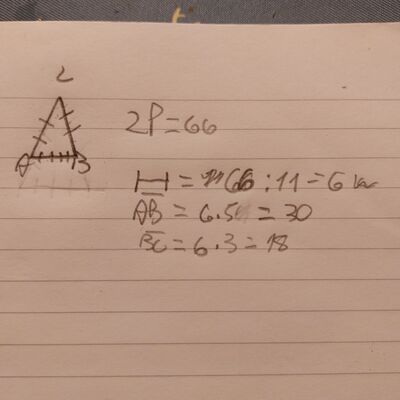 C
A B
2P=66
⊢⊣ = 66 : 11 = 6 cm
AB = 6.5 = 30
BC = 6.3 = 18